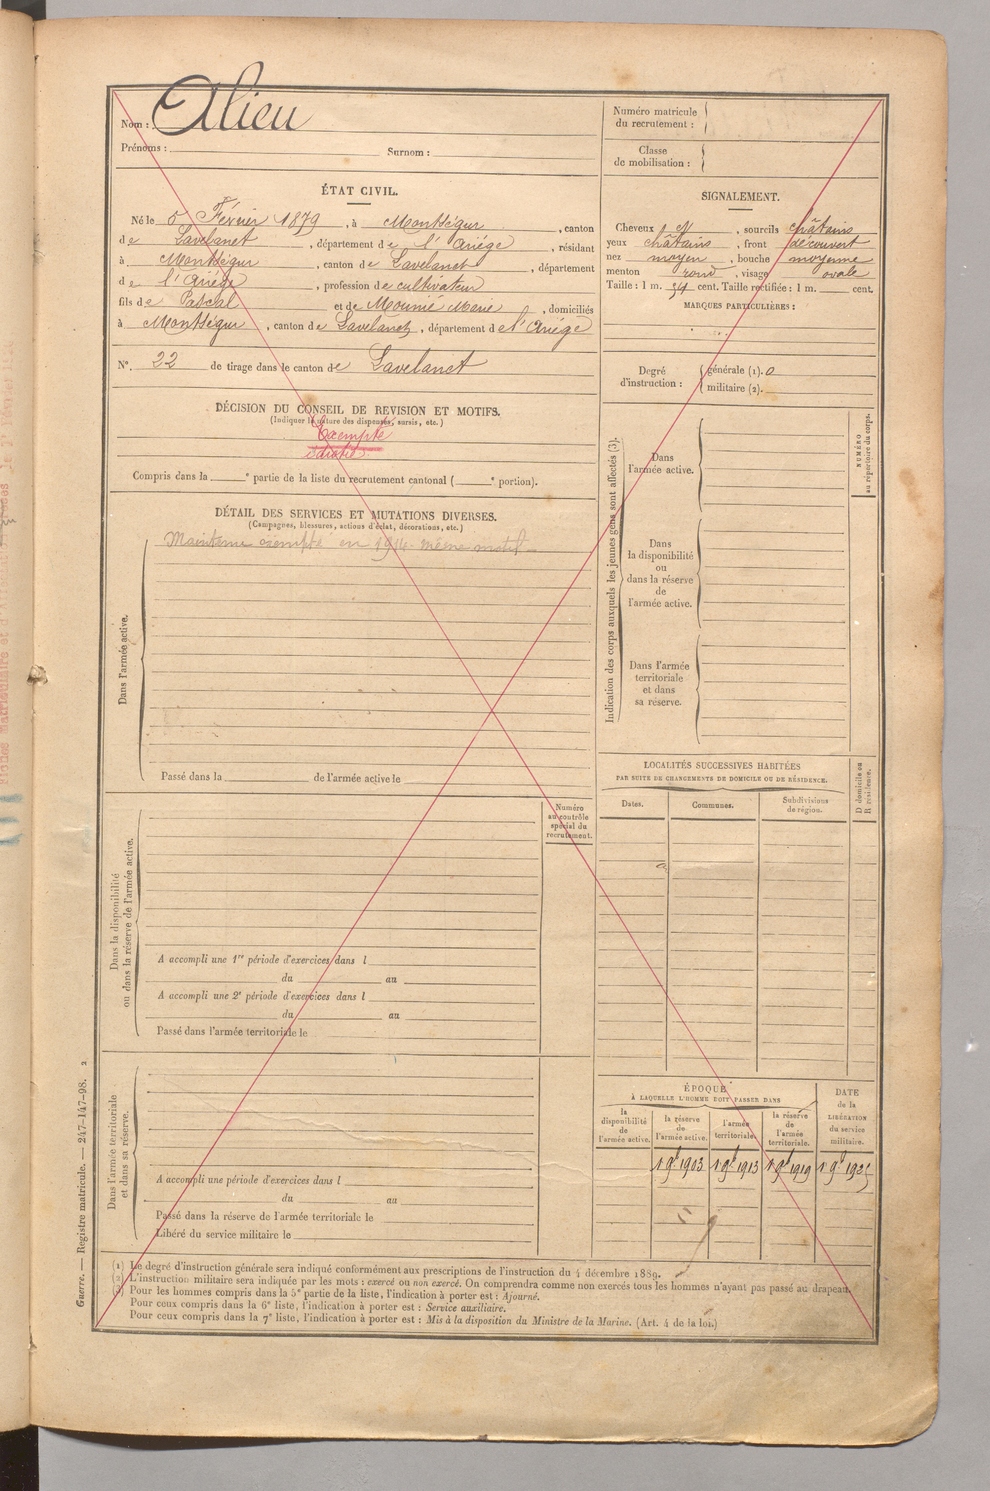 Nom : Alieu
Prénoms : Surnom :
Numéro matricule
du recrutement :
Classe
de mobilisation :
ÉTAT CIVIL.
Né le 5 Février 1879, à Montségur, canton
de Lavelanet, département de l'Ariége, résidant
à Montségur, canton de Lavelanet, département
de l'Ariége, profession de cultivateur
fils de Pascal et de Mounié Marie, domiciliés
à Montségur, canton de Lavelanet, département de l'Ariége
N°. 22 de tirage dans le canton de Lavelanet
SIGNALEMENT.
Cheveux et, sourcils châtains
yeux châtains, front découvert
nez moyen, bouche moyenne
menton rond, visage ovale
Taille : 1 m. 54 cent. Taille rectifiée : 1 m. cent.
MARQUES PARTICULIÈRES :
Degré
d'instruction :
générale (1). 0
militaire (2).
DÉCISION DU CONSEIL DE REVISION ET MOTIFS.
(Indiquer la nature des dispenses, sursis, etc.)
Exempté
Compris dans la e partie de la liste du recrutement cantonal ( e portion).
DÉTAIL DES SERVICES ET MUTATIONS DIVERSES.
(Campagnes, blessures, actions d'éclat, décorations, etc.)
Dans l'armée active.
Maintenu exempté en 1914 même motif
Passé dans la de l'armée active le
Indication des corps auxquels les jeunes gens sont affectés (3).
Dans
l'armée active.
Dans
la disponibilité
ou
dans la réserve
de
l'armée active.
Dans l'armée
territoriale
et dans
sa réserve.
NUMÉRO
au répertoire du corps.
LOCALITÉS SUCCESSIVES HABITÉES
PAR SUITE DE CHANGEMENTS DE DOMICILE OU DE RÉSIDENCE.
Dates.
Communes.
Subdivisions
de région.
D domicile ou
R résidence.
Numéro
au contrôle
spécial du
recrutement.
Dans la disponibilité
ou dans la réserve de l'armée active.
A accompli une 1re période d'exercices dans l
du au
A accompli une 2e période d'exercices dans l
du au
Passé dans l'armée territoriale le
Dans l'armée territoriale
et dans sa réserve.
A accompli une période d'exercices dans l
du au
Passé dans la réserve de l'armée territoriale le
Libéré du service militaire le
ÉPOQUE
À LAQUELLE L'HOMME DOIT PASSER DANS
la
disponibilité
de
l'armée active.
la réserve
de
l'armée active.
l'armée
territoriale.
la réserve
de
l'armée
territoriale.
DATE
de la
LIBÉRATION
du service
militaire.
1 9bre 1903 1 9bre 1913 1 9bre 1919 1 9bre 1925
(1) Le degré d'instruction générale sera indiqué conformément aux prescriptions de l'instruction du 4 décembre 1889.
(2) L'instruction militaire sera indiquée par les mots : exercé ou non exercé. On comprendra comme non exercés tous les hommes n'ayant pas passé au drapeau.
(3) Pour les hommes compris dans la 5e partie de la liste, l'indication à porter est : Ajourné.
Pour ceux compris dans la 6e liste, l'indication à porter est : Service auxiliaire.
Pour ceux compris dans la 7e liste, l'indication à porter est : Mis à la disposition du Ministre de la Marine. (Art. 4 de la loi.)
Guerre. — Registre matricule. — 247-147-98. 2